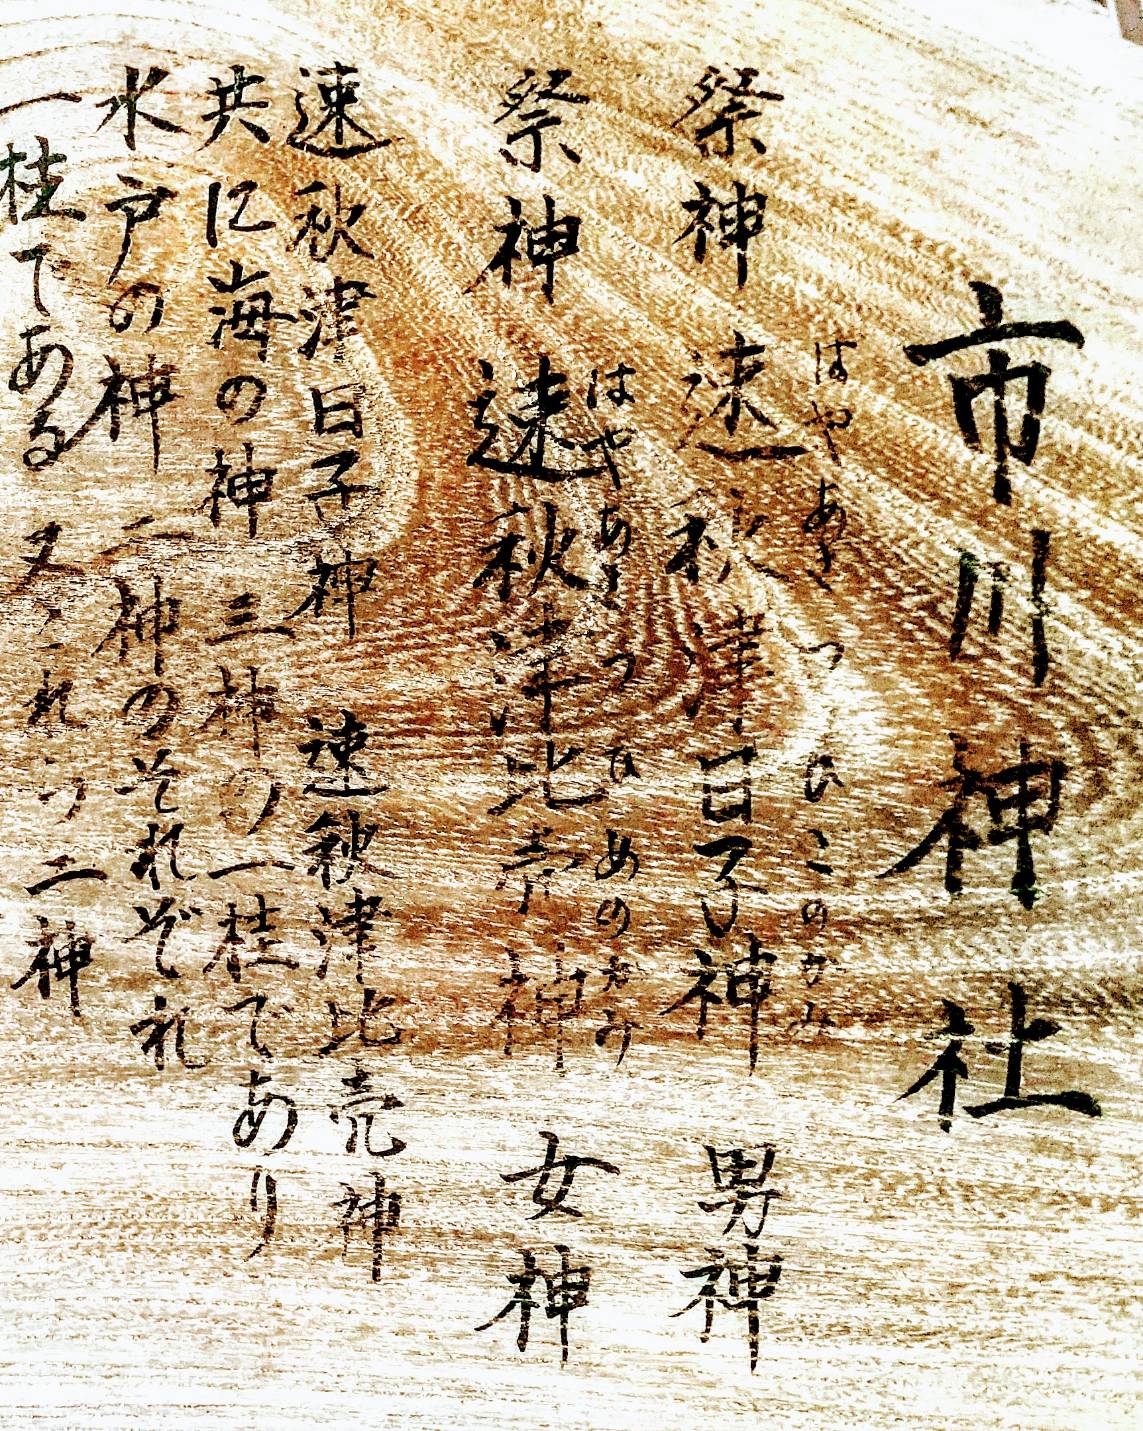 市川神社
はやあきつひこのかみ
祭神 速秋津日子神 男神
はやあきつひめのかみ
祭神 速秋津比売神 女神
速秋津日子神 速秋津比売神
共に海の神 三神の一柱であり
水戸の神 二神のそれぞれ
一柱である 又これの二神